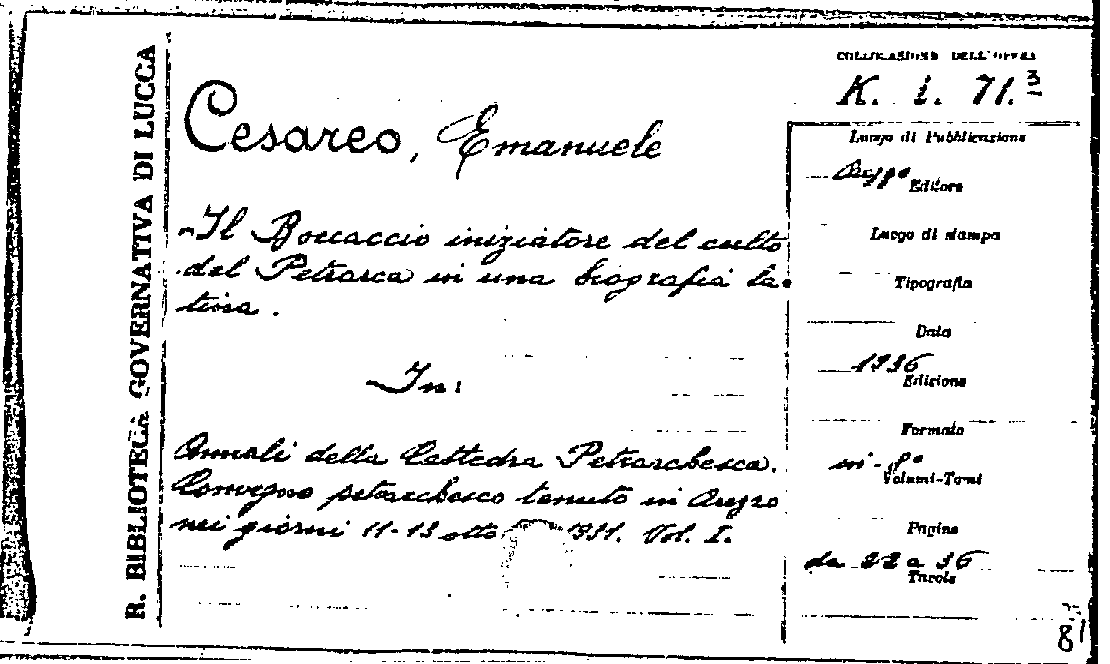 R. BIBLIOTECA GOVERNATIVA DI LUCCA
COLLOCAZIONE DELL'OPERA
K. 1. 71.3
Cesareo, Emanuele
"Il Boccaccio iniziatore del culto
del Petrarca in una biografia la-
tina.
In:
Annali della Cattedra Petrarchesca.
Convegno petrarchesco tenuto in Arezzo
nei giorni 11-13 otto 1931. Vol. I.
Luogo di Pubblicazione
Arezzo
Editore
Luogo di stampa
Tipografia
Data
1936
Edizione
Formato
in-8°
Volumi-Tomi
Pagine
da 22 a 36
Tavole
81